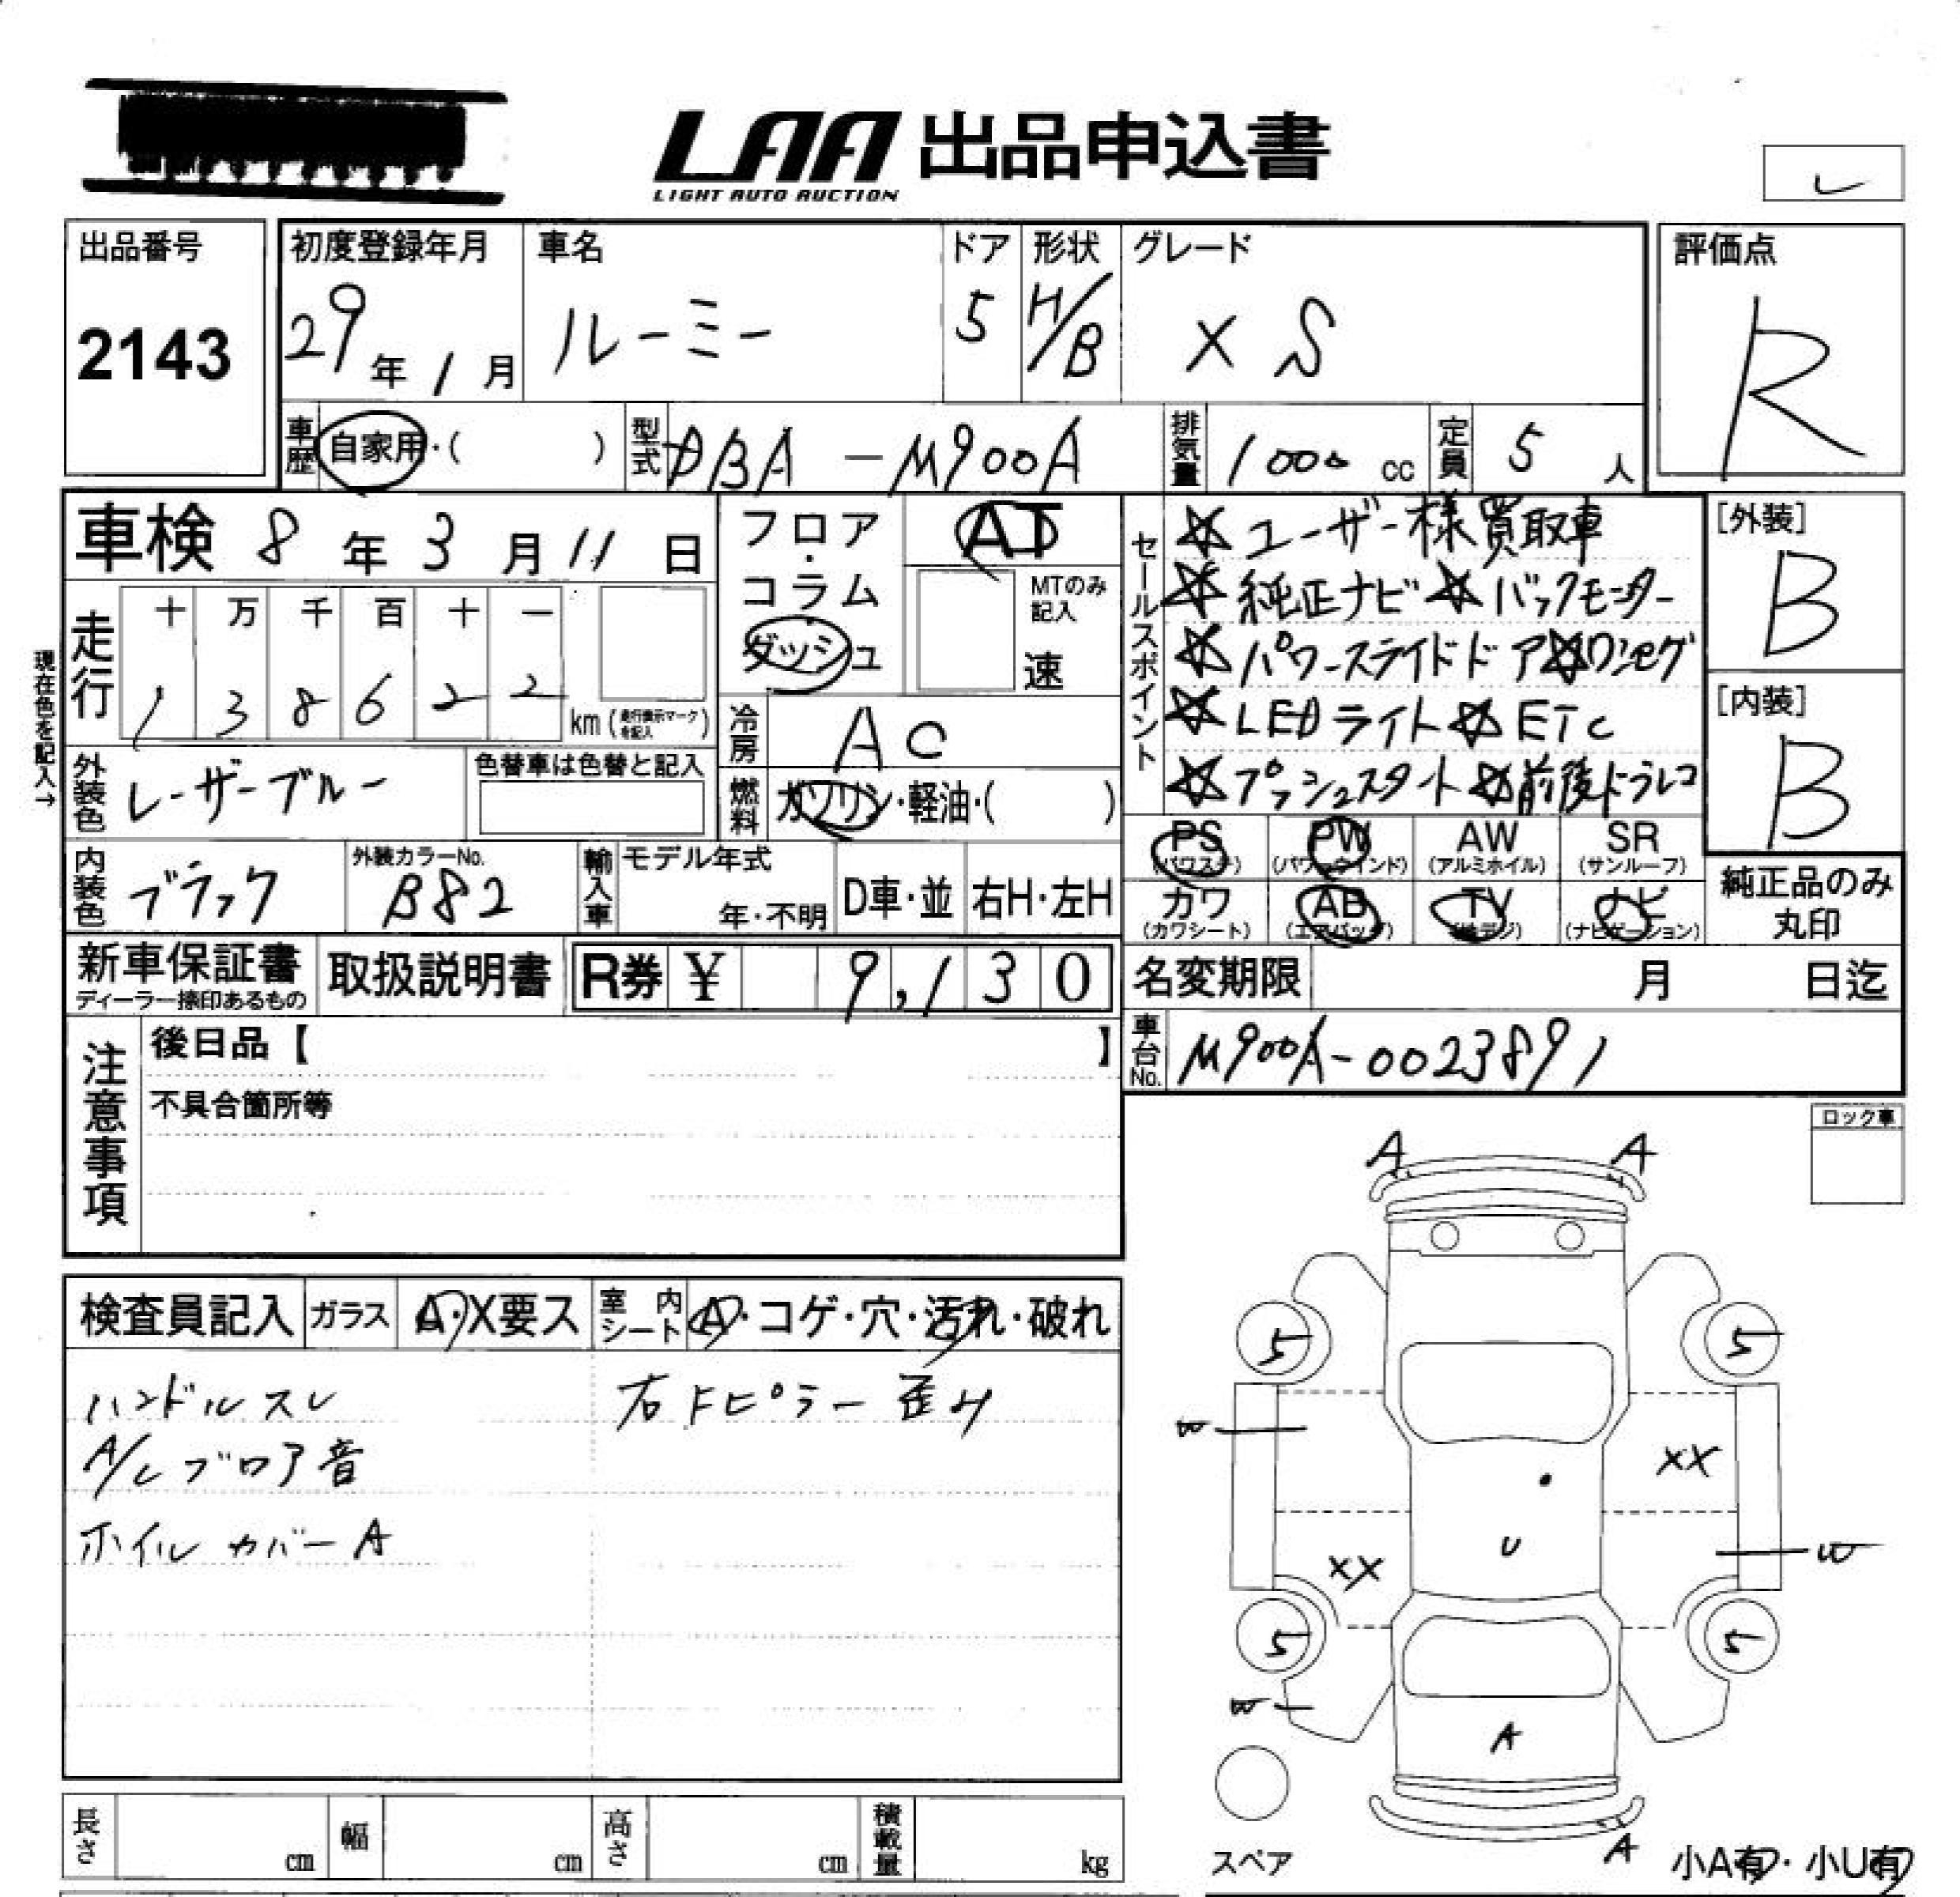 LAA 出品申込書
LIGHT AUTO AUCTION
出品番号
2143
初度登録年月
29年1月
車名
ルーミー
ドア
5
形状
H/B
グレード
X S
評価点
R
車歴
自家用・( )
型式
DBA-M900A
排気量
1000 cc
定員
5 人
車検 8年3月11日
現在色を記入→
走行
十 万 千 百 十 一
1 3 8 6 2 2
km (走行表示マークを記入)
フロア・コラム
ダッシュ
AT
MTのみ記入
速
冷房
AC
燃料
ガソリン・軽油・( )
セールスポイント
☆ユーザー様買取車
☆純正ナビ☆バックモニター
☆パワースライドドア☆ワンセグ
☆LEDライト☆ETC
☆プッシュスタート☆前後ドラレコ
[外装]
B
[内装]
B
外装色
レーザーブルー
色替車は色替と記入
内装色
ブラック
外装カラーNo.
B82
輸入車
モデル年式
年・不明
D車・並
右H・左H
PS (パワステ)
PW (パワーウインド)
AW (アルミホイル)
SR (サンルーフ)
カワ (カワシート)
AB (エアバッグ)
TV (地デジ)
ナビ (ナビゲーション)
純正品のみ丸印
新車保証書
ディーラー捺印あるもの
取扱説明書
R券 ¥ 9,130
名変期限 月 日迄
車台No.
M900A-0023891
注意事項
後日品【 】
不具合箇所等
ロック車
検査員記入
ガラス
A・X要ス
室内シート
A・コゲ・穴・汚れ・破れ
ハンドルスレ
右Fピラー歪み
A/Cブロア音
ホイルカバーA
A A
5 5
W
XX
U
W
XX
5 5
W
A
A
スペア
小A有・小U有
長さ cm
幅 cm
高さ cm
積載量 kg